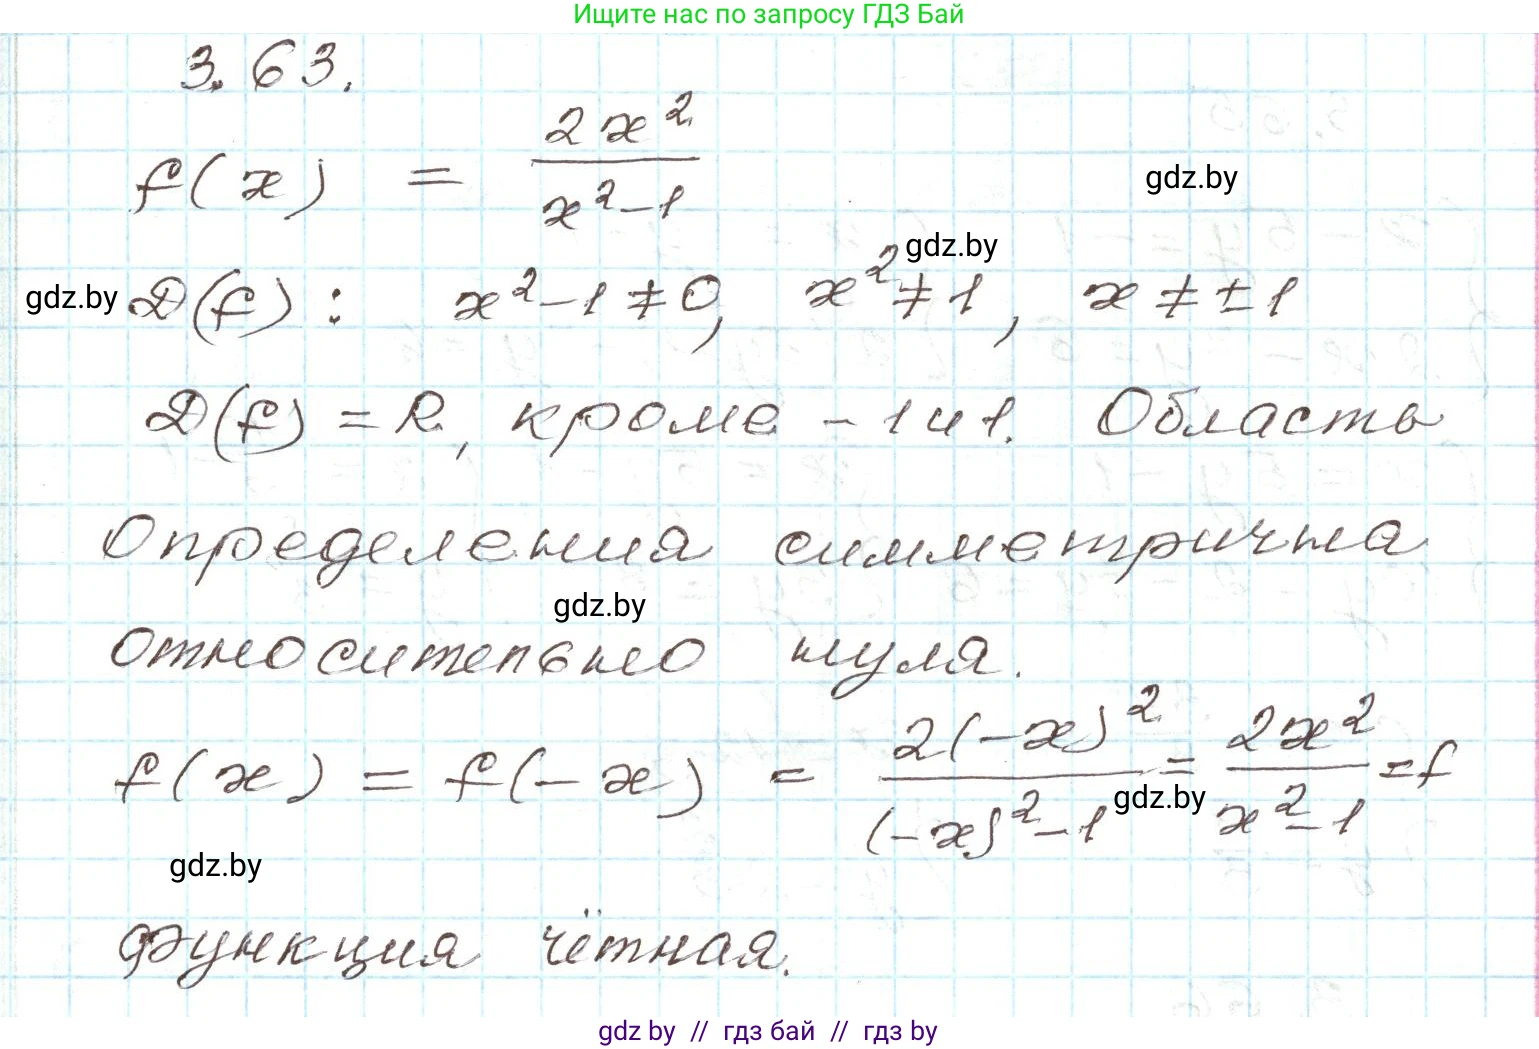 Ищите нас по запросу ГДЗ Бай
3.63.
f(x) = \frac{2x^2}{x^2-1}
gdz.by
gdz.by
gdz.by
D(f): x^2-1≠0, x^2≠1, x≠±1
D(f) = R, кроме -1 и 1. Область
определения симметрична
gdz.by
относительно нуля.
f(x) = f(-x) = \frac{2(-x)^2}{(-x)^2-1} = \frac{2x^2}{x^2-1} = f
gdz.by
gdz.by
Функция чётная.
gdz by // гдз бай // гдз by